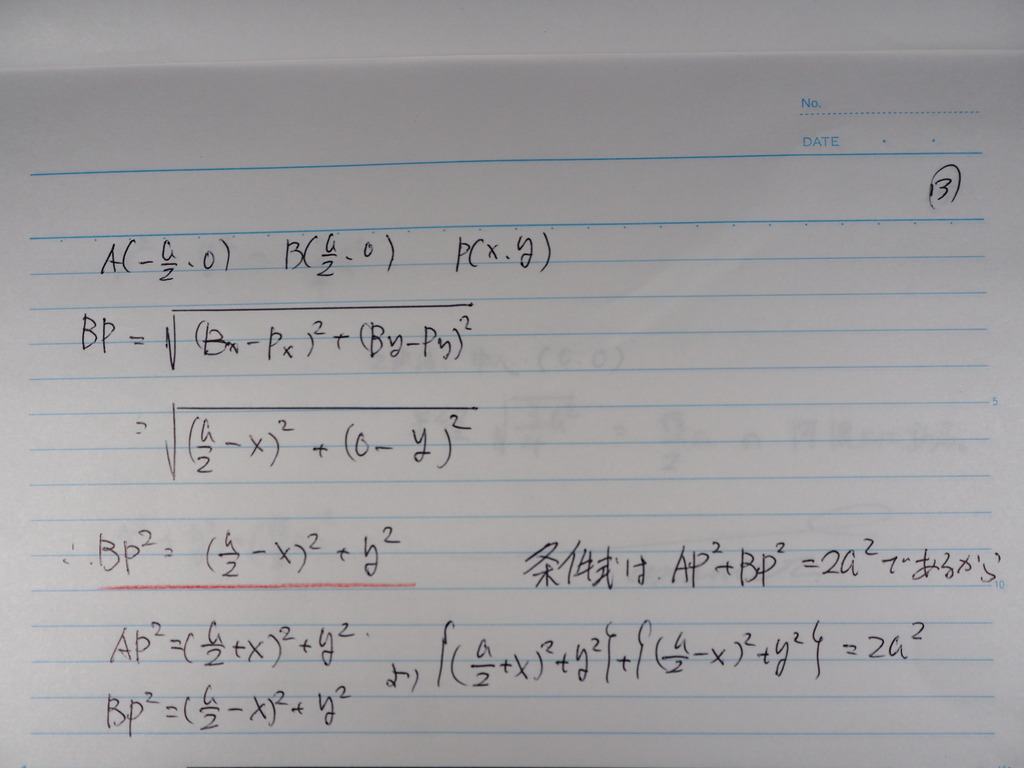 No.
DATE
③
A(-a/2・0) B(a/2・0) P(x・y)
BP = √((Bx-Px)² + (By-Py)²)
= √((a/2-x)² + (0-y)²)
∴ BP² = (a/2-x)² + y²
条件式は、AP²+BP² = 2a² であるから
AP² = (a/2+x)² + y²
BP² = (a/2-x)² + y²
より {(a/2+x)²+y²}+{(a/2-x)²+y²} = 2a²
5
10